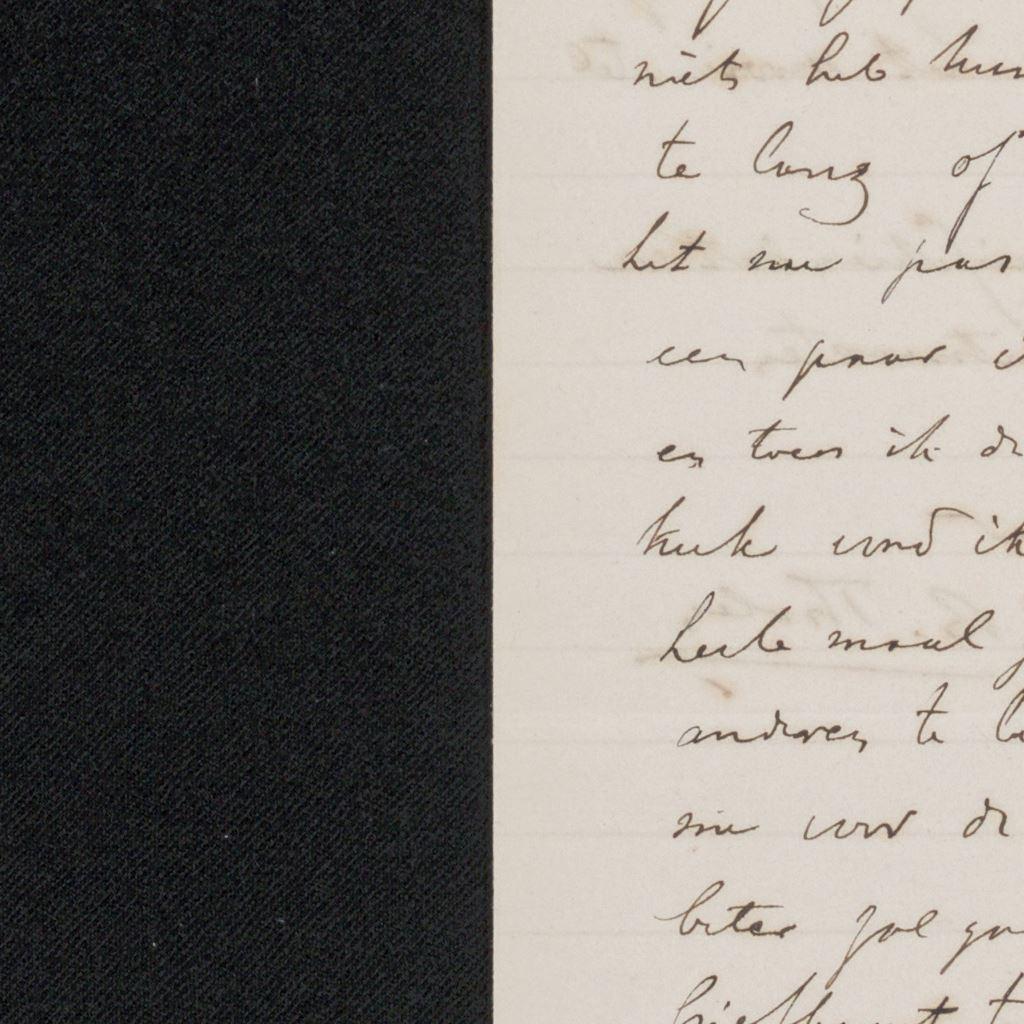 niets heb
te lang of
het me pas
een paar
en toen ik
keek vond ik
heele maal
anderen te
me voor de
beter zal